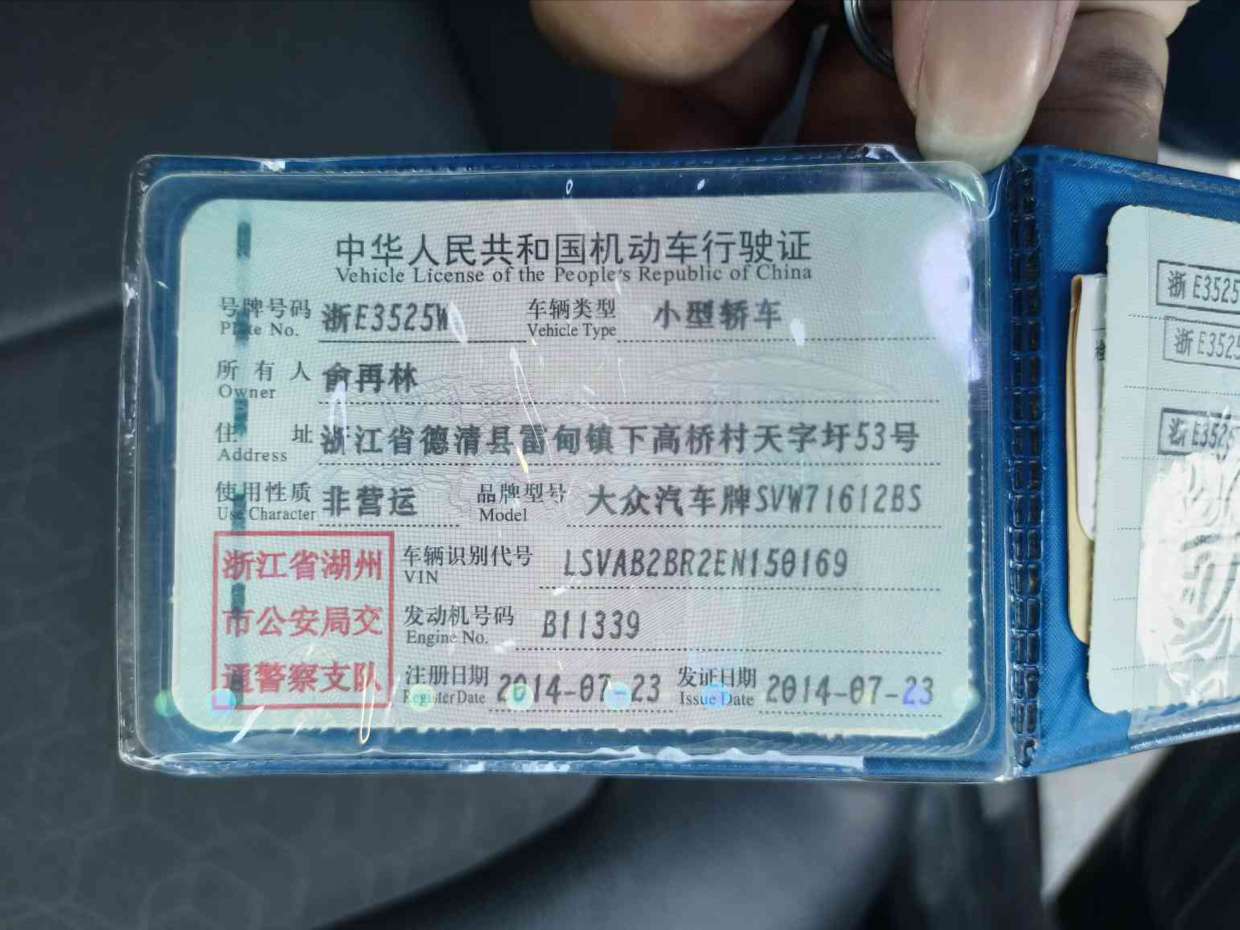 中华人民共和国机动车行驶证
Vehicle License of the People's Republic of China
号牌号码 浙E3525W 车辆类型 小型轿车
Plate No. Vehicle Type
所有人 俞再林
Owner
住址 浙江省德清县雷甸镇下高桥村天字圩53号
Address
使用性质 非营运 品牌型号 大众汽车牌SVW71612BS
Use Character Model
浙江省湖州
市公安局交
通警察支队
车辆识别代号 LSVAB2BR2EN150169
VIN
发动机号码 B11339
Engine No.
注册日期 2014-07-23 发证日期 2014-07-23
Register Date Issue Date
浙E3525
浙E3525
浙E3525